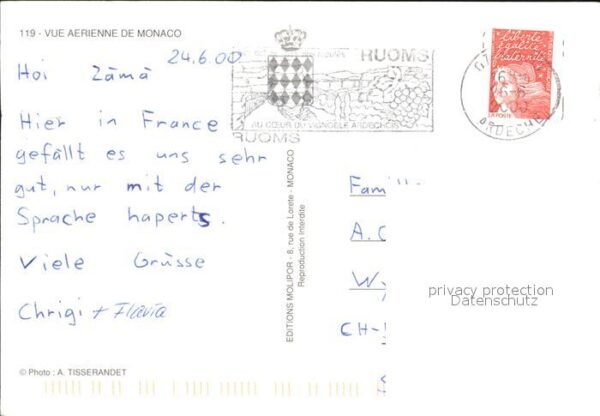 119 - VUE AERIENNE DE MONACO
24.6.00
Hoi Zämä
Hier in France
gefällt es uns sehr
gut, nur mit der
Sprache haperts.
Viele Grüsse
Chrigi + Flavia
© Photo : A. TISSERANDET
EDITIONS MOLIPOR - 8, rue de Lorete - MONACO
Reproduction Interdite
RUOMS
AU CŒUR DU VIGNOBLE ARDECHOIS
RUOMS
liberté
égalité
fraternité
LA POSTE
ARDECHE
Fam
A.
W
CH-
privacy protection
Datenschutz